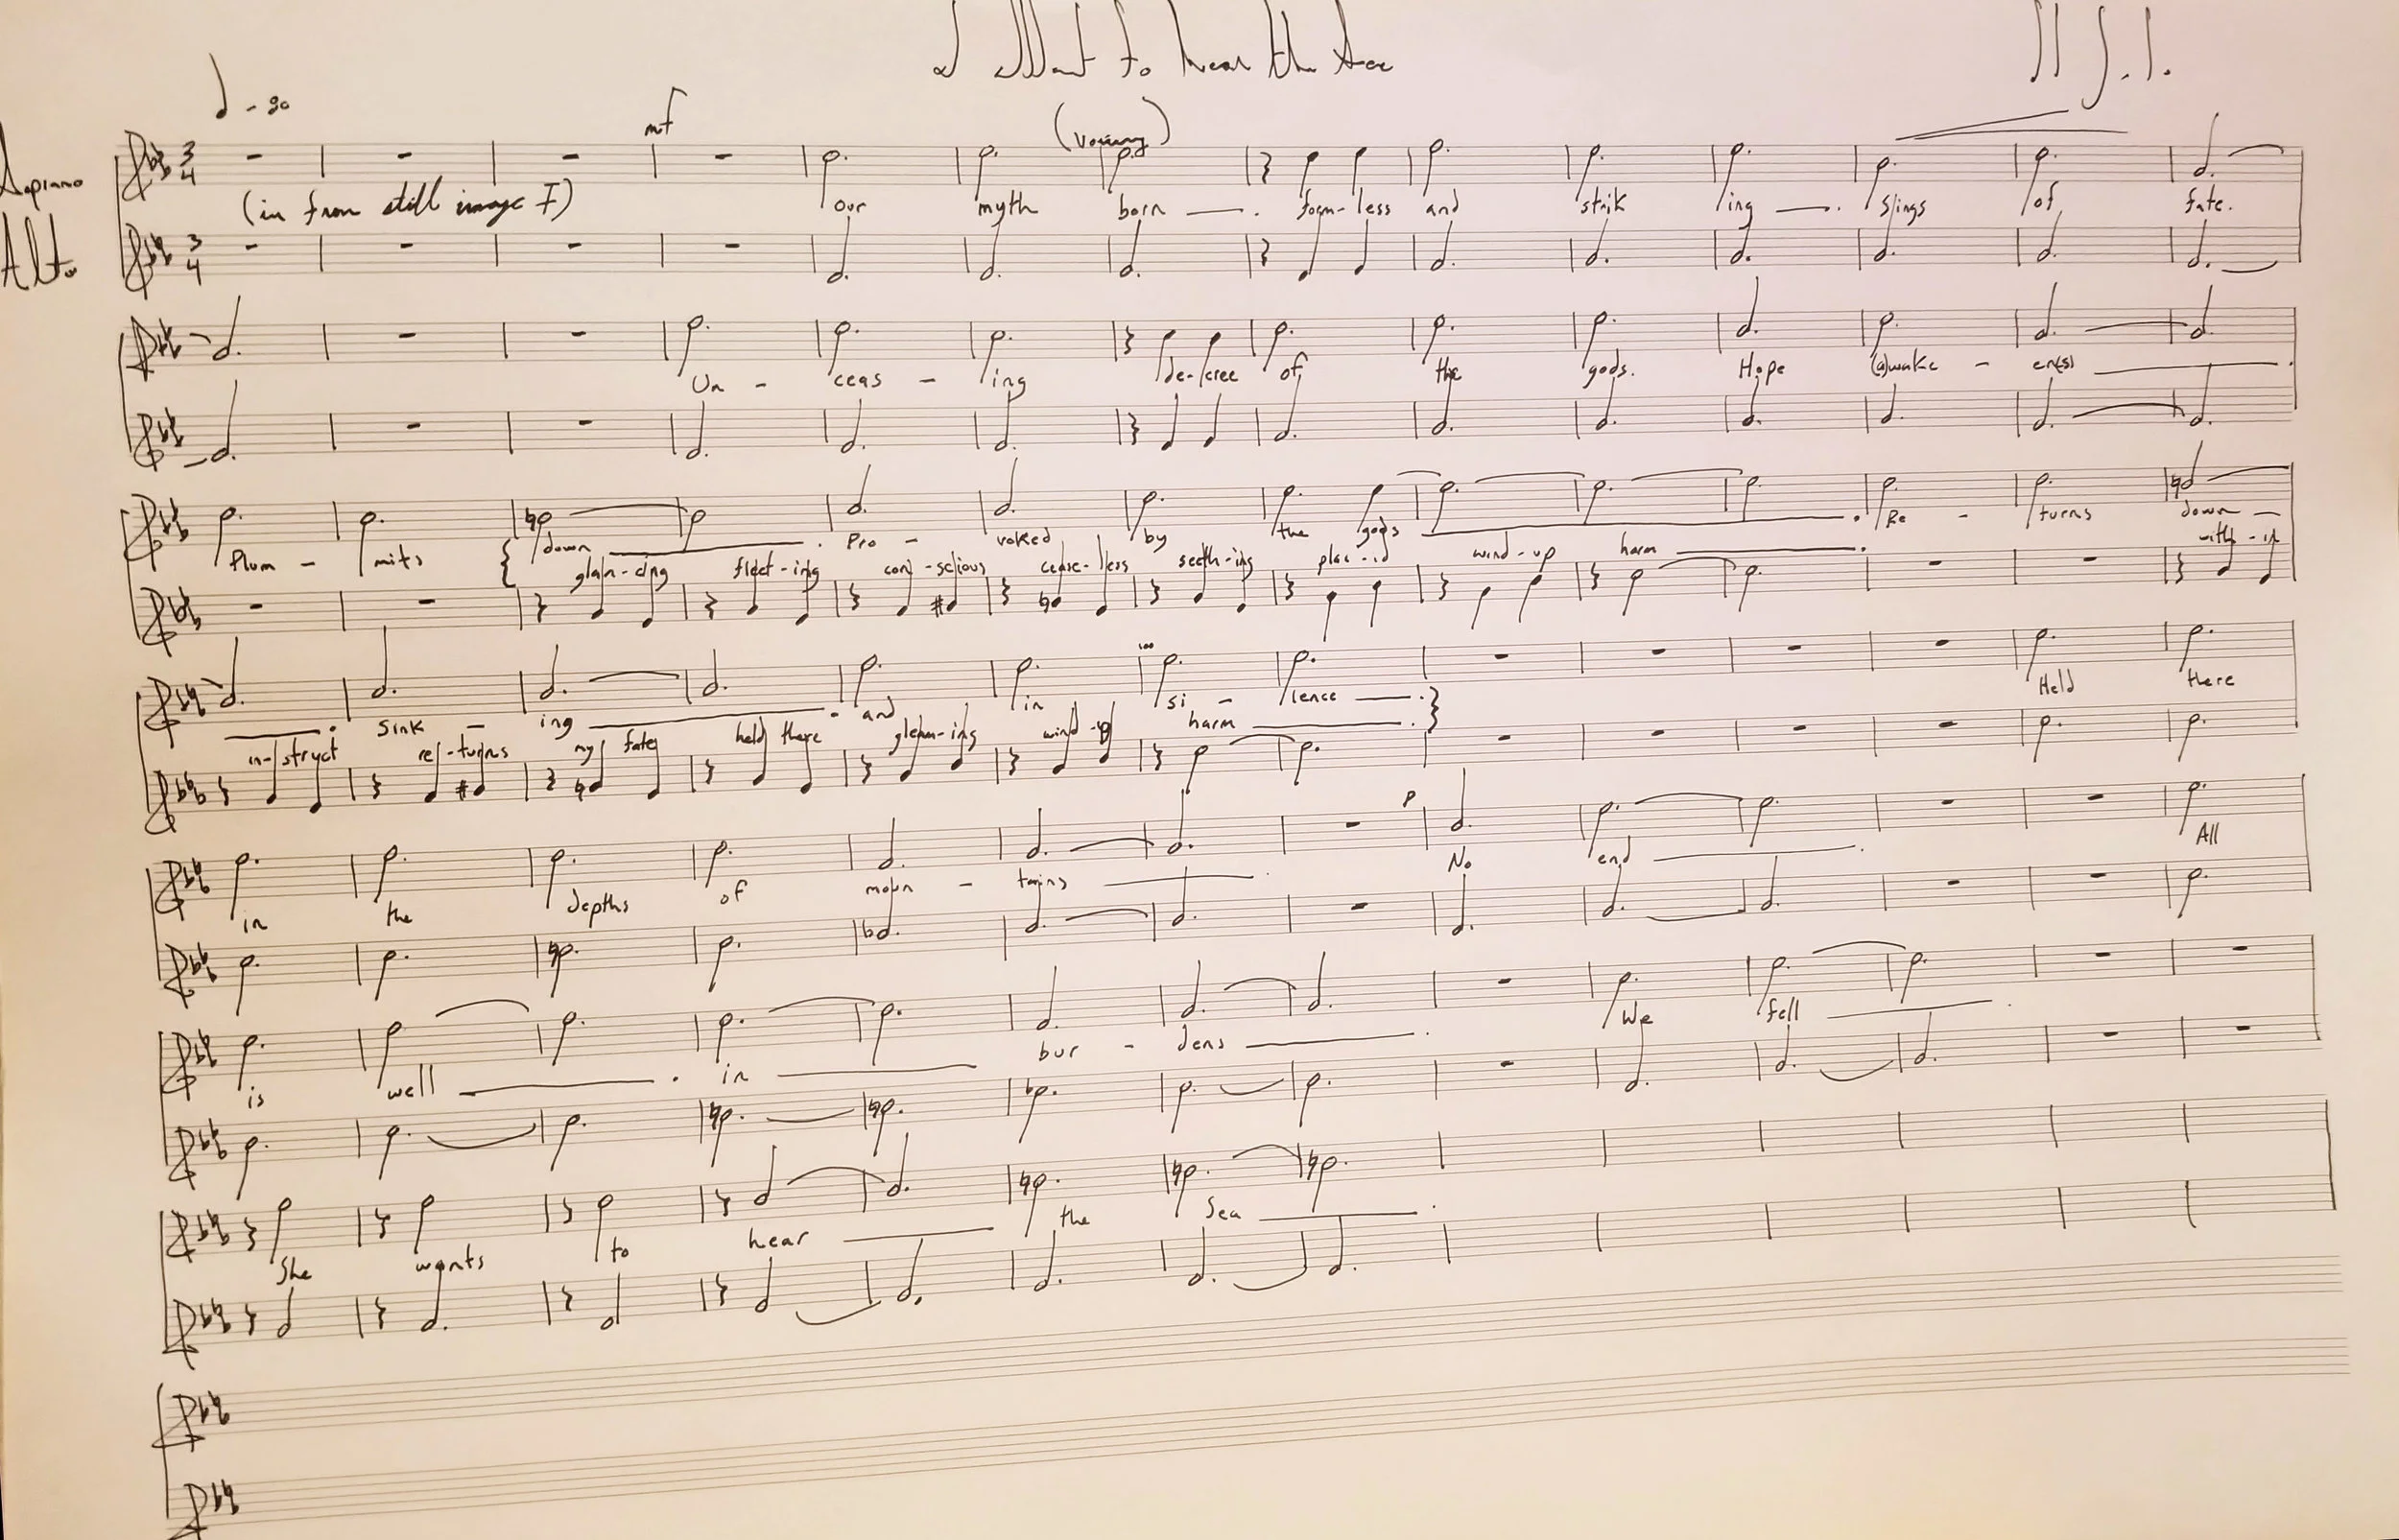 I Want to hear the Sea
S.I.
♩ - 90
mf
(Voicing)
Soprano
3 4
(in from still image I)
our myth born — . form - less and strik ing — . Slings of fate.
Alto
3 4
Un - ceas - ing de - cree of the gods. Hope (a)wake - en(s) — .
Plum - mits down — . Pro - voked by the gods — . Re - turns down —
glan - cing fleet - ing con - scious cease - less seeth - ing plac - id wind - up harm — . with - in
Sink - ing — . and in si - lence — . Held there
in - struct re - turns my fate held there gleam - ing wind - up harm — .
p
in the depths of moun - tains — . No end — . All
is well — . in — bur - dens — . We fell — .
She wants to hear — the Sea — .